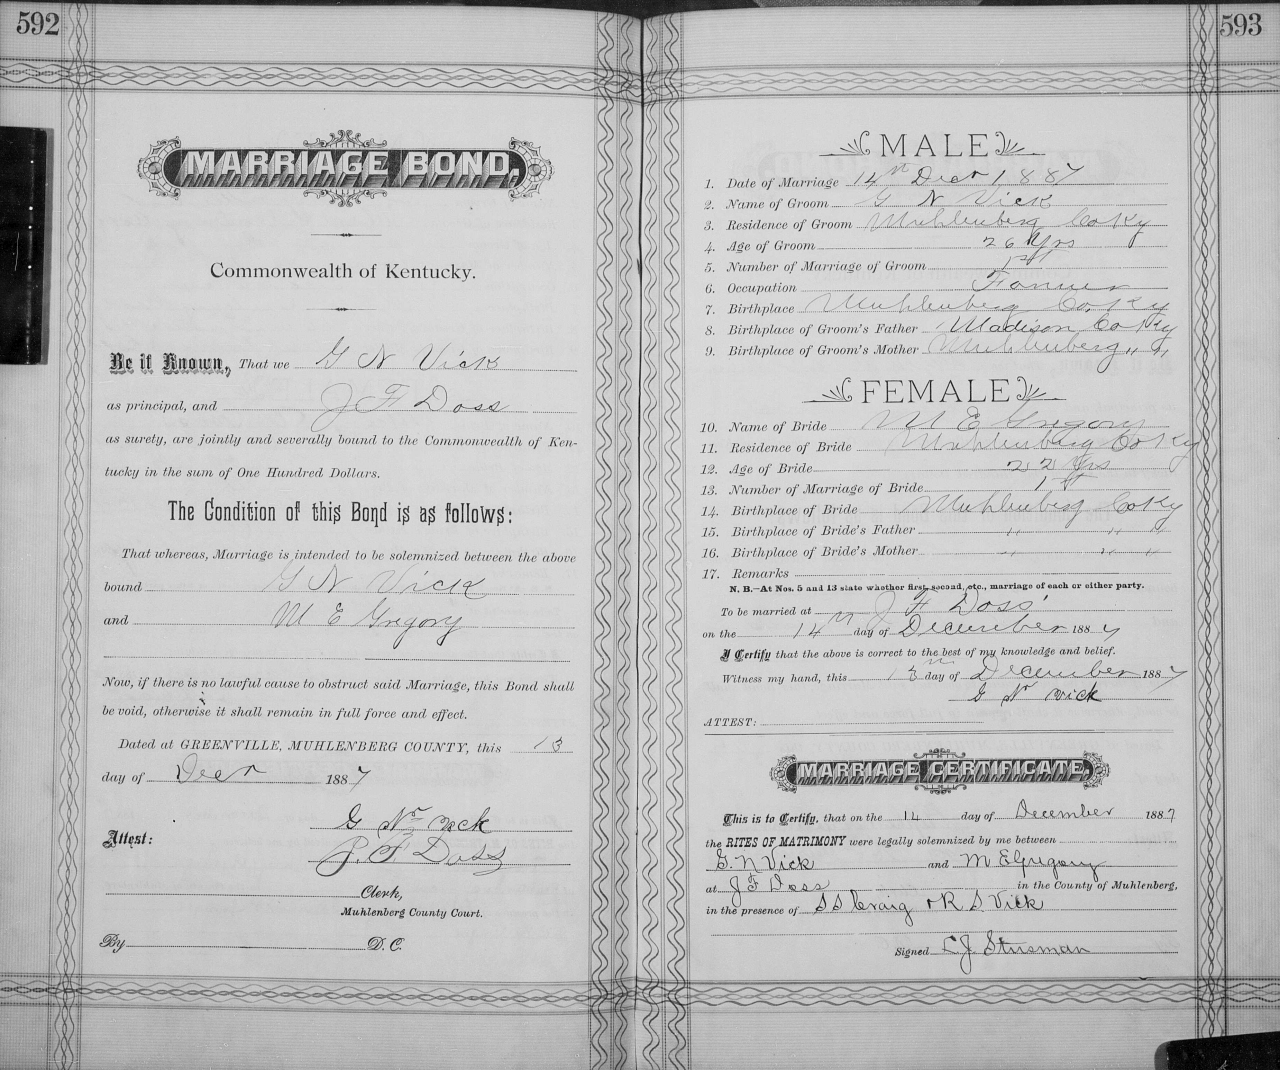 592
MARRIAGE BOND.
Commonwealth of Kentucky.
Be it Known, That we G N Vick
as principal, and J F Doss
as surety, are jointly and severally bound to the Commonwealth of Ken-
tucky in the sum of One Hundred Dollars.
The Condition of this Bond is as follows:
That whereas, Marriage is intended to be solemnized between the above
bound G N Vick
and M E Gregory
Now, if there is no lawful cause to obstruct said Marriage, this Bond shall
be void, otherwise it shall remain in full force and effect.
Dated at GREENVILLE, MUHLENBERG COUNTY, this 13
day of Decr 1887
G N Vick
Attest:
J. F Doss
Clerk,
Muhlenberg County Court.
By D. C.
593
MALE
1. Date of Marriage 14th Decr 1887
2. Name of Groom G N Vick
3. Residence of Groom Muhlenberg Co Ky
4. Age of Groom 26 Yrs
5. Number of Marriage of Groom 1st
6. Occupation Farmer
7. Birthplace Muhlenberg Co. Ky
8. Birthplace of Groom's Father Madison Co Ky
9. Birthplace of Groom's Mother Muhlenberg " "
FEMALE
10. Name of Bride M E Gregory
11. Residence of Bride Muhlenberg Co Ky
12. Age of Bride 22 Yrs
13. Number of Marriage of Bride 1st
14. Birthplace of Bride Muhlenberg Co Ky
15. Birthplace of Bride's Father " " "
16. Birthplace of Bride's Mother " " "
17. Remarks
N. B.—At Nos. 5 and 13 state whether first, second, etc., marriage of each or either party.
To be married at J F Doss'
on the 14th day of December 1887
I Certify that the above is correct to the best of my knowledge and belief.
Witness my hand, this 13th day of December 1887
G N Vick
ATTEST:
MARRIAGE CERTIFICATE.
This is to Certify, that on the 14 day of December 1887
the RITES OF MATRIMONY were legally solemnized by me between
G. N Vick and M E Gregory
at J F Doss in the County of Muhlenberg,
in the presence of S S Craig & R S. Vick
Signed L. J. Stirsman